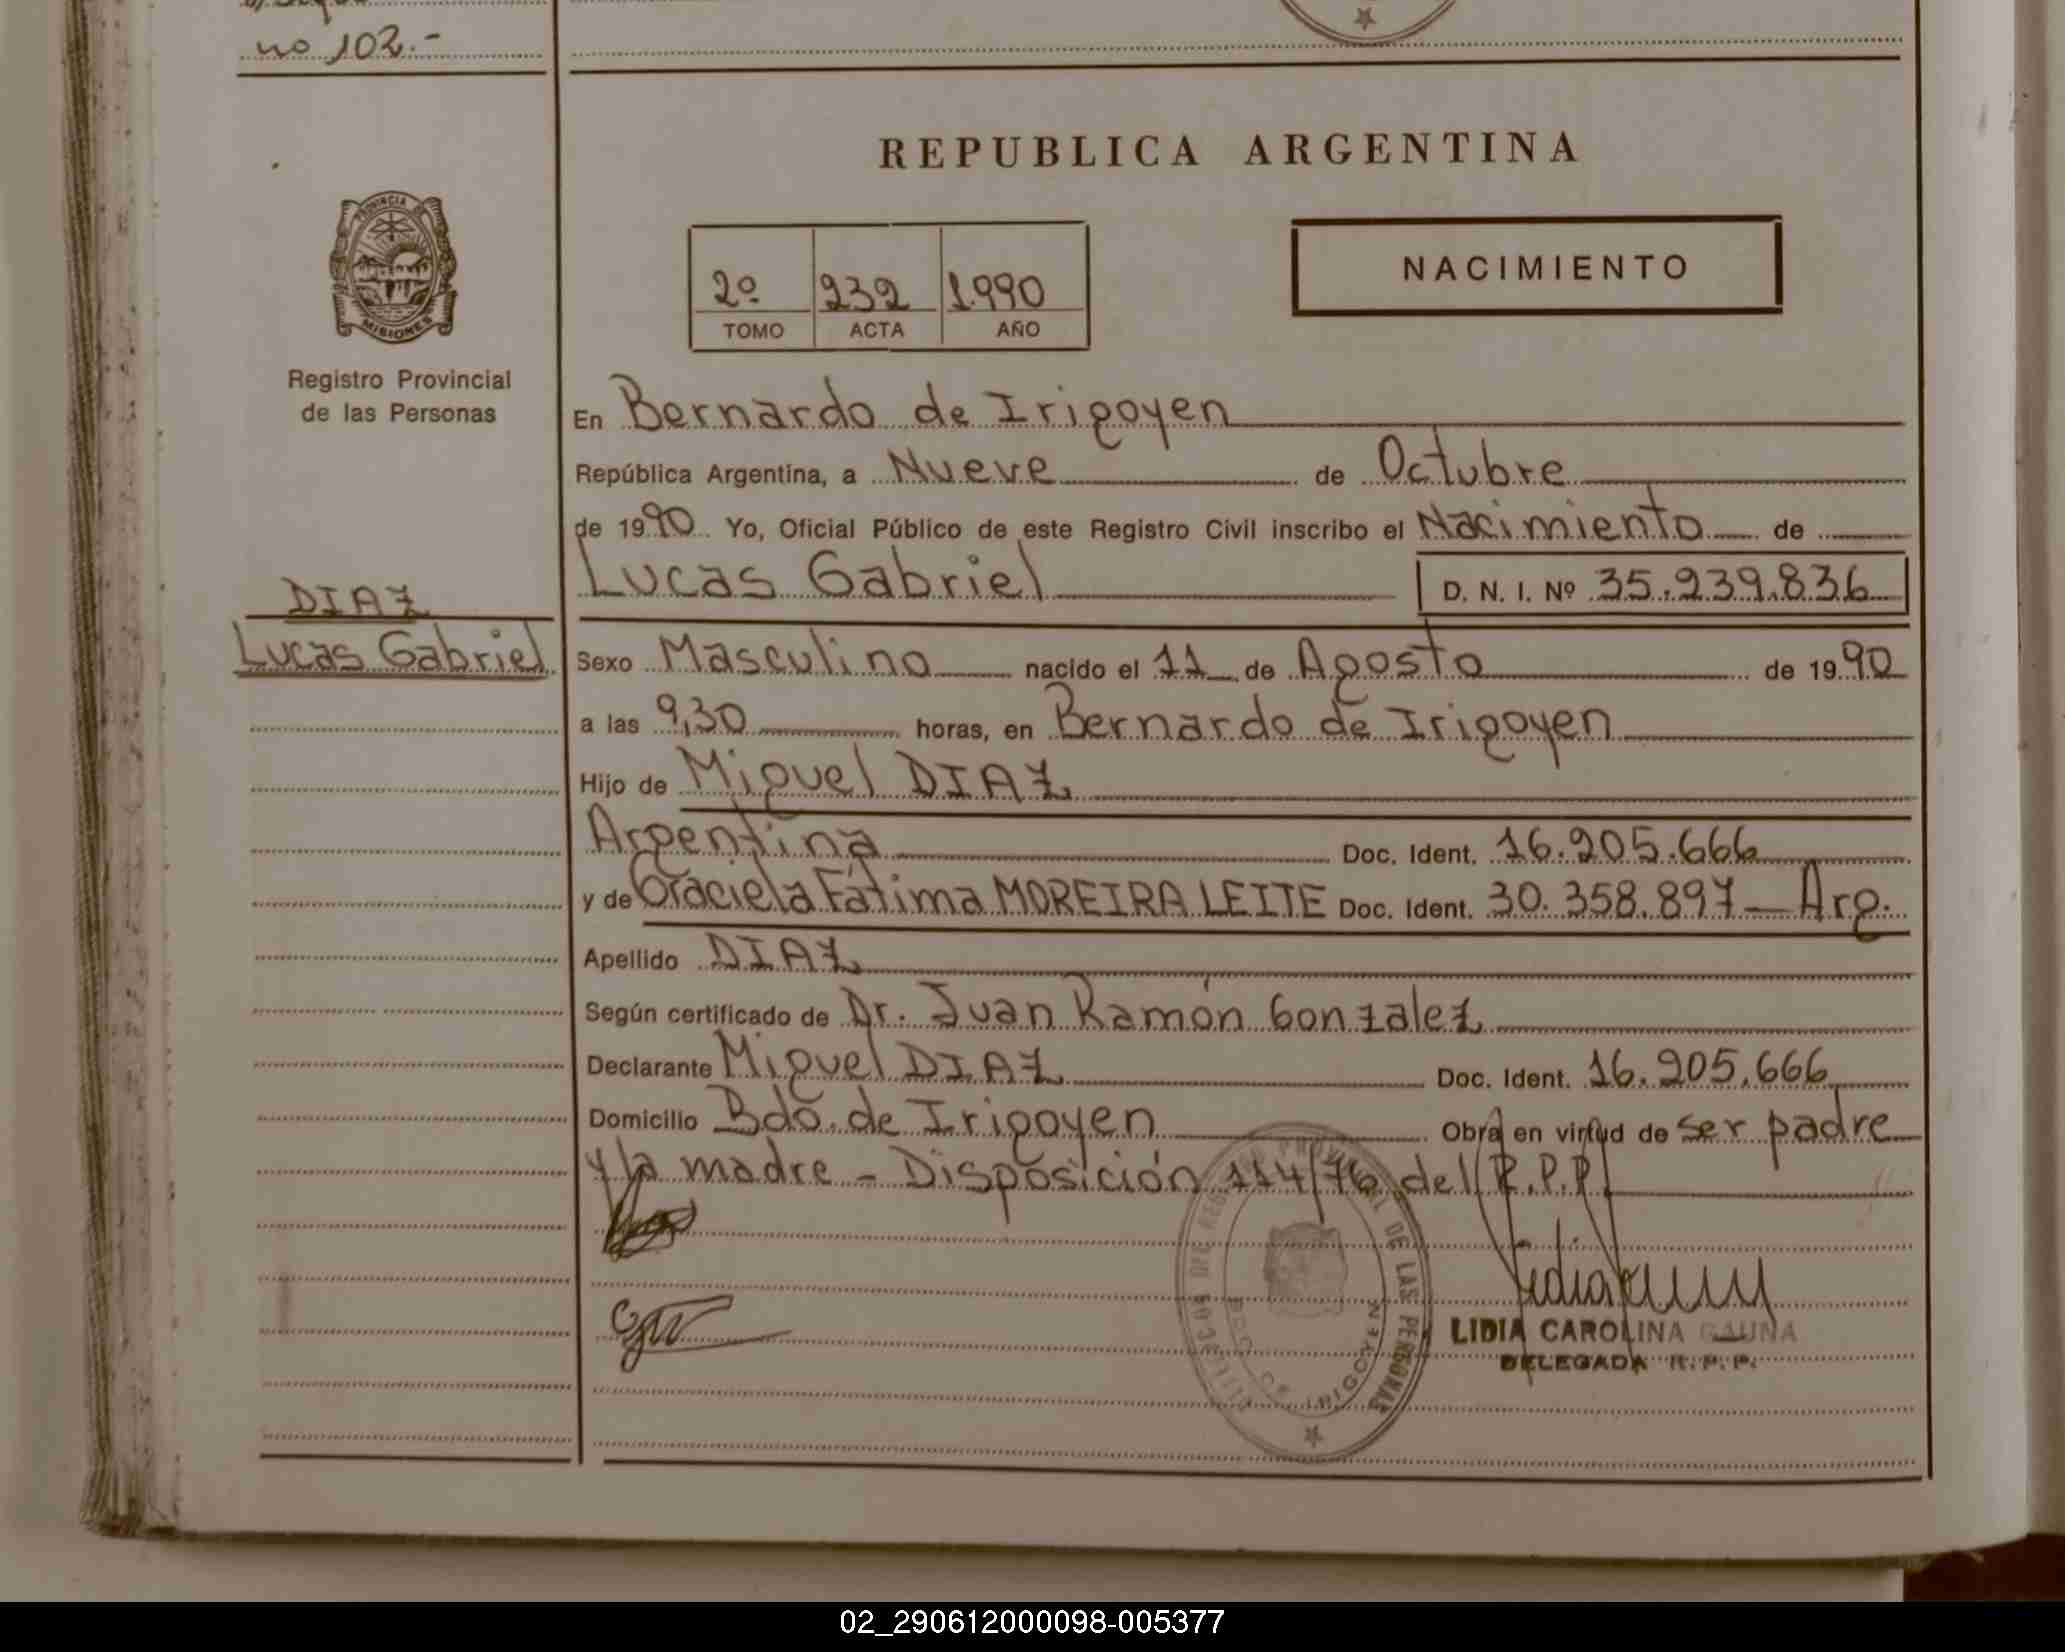 no 102.-
REPUBLICA ARGENTINA
PROVINCIA DE
MISIONES
Registro Provincial
de las Personas
2º 232 1.990
TOMO ACTA AÑO
NACIMIENTO
En Bernardo de Irigoyen
República Argentina, a Nueve de Octubre
de 1990 Yo, Oficial Público de este Registro Civil inscribo el Nacimiento de
Lucas Gabriel D. N. I. Nº 35.239.836
DIAZ
Lucas Gabriel
Sexo Masculino nacido el 11 de Agosto de 1990
a las 9,30 horas, en Bernardo de Irigoyen
Hijo de Miguel DIAZ
Argentina Doc. Ident. 16.205.666
y de Graciela Fátima MOREIRA LEITE Doc. Ident. 30.358.897 - Arg.
Apellido DIAZ
Según certificado de Dr. Juan Ramón Gonzalez
Declarante Miguel DIAZ Doc. Ident. 16.205.666
Domicilio Bdo. de Irigoyen Obra en virtud de ser padre
y la madre - Disposición 114/76 del R.P.P.
PROVINCIAL DE LAS PERSONAS
BDO. DE IRIGOYEN
LIDIA CAROLINA GAUNA
DELEGADA R.P.P.
02_290612000098-005377